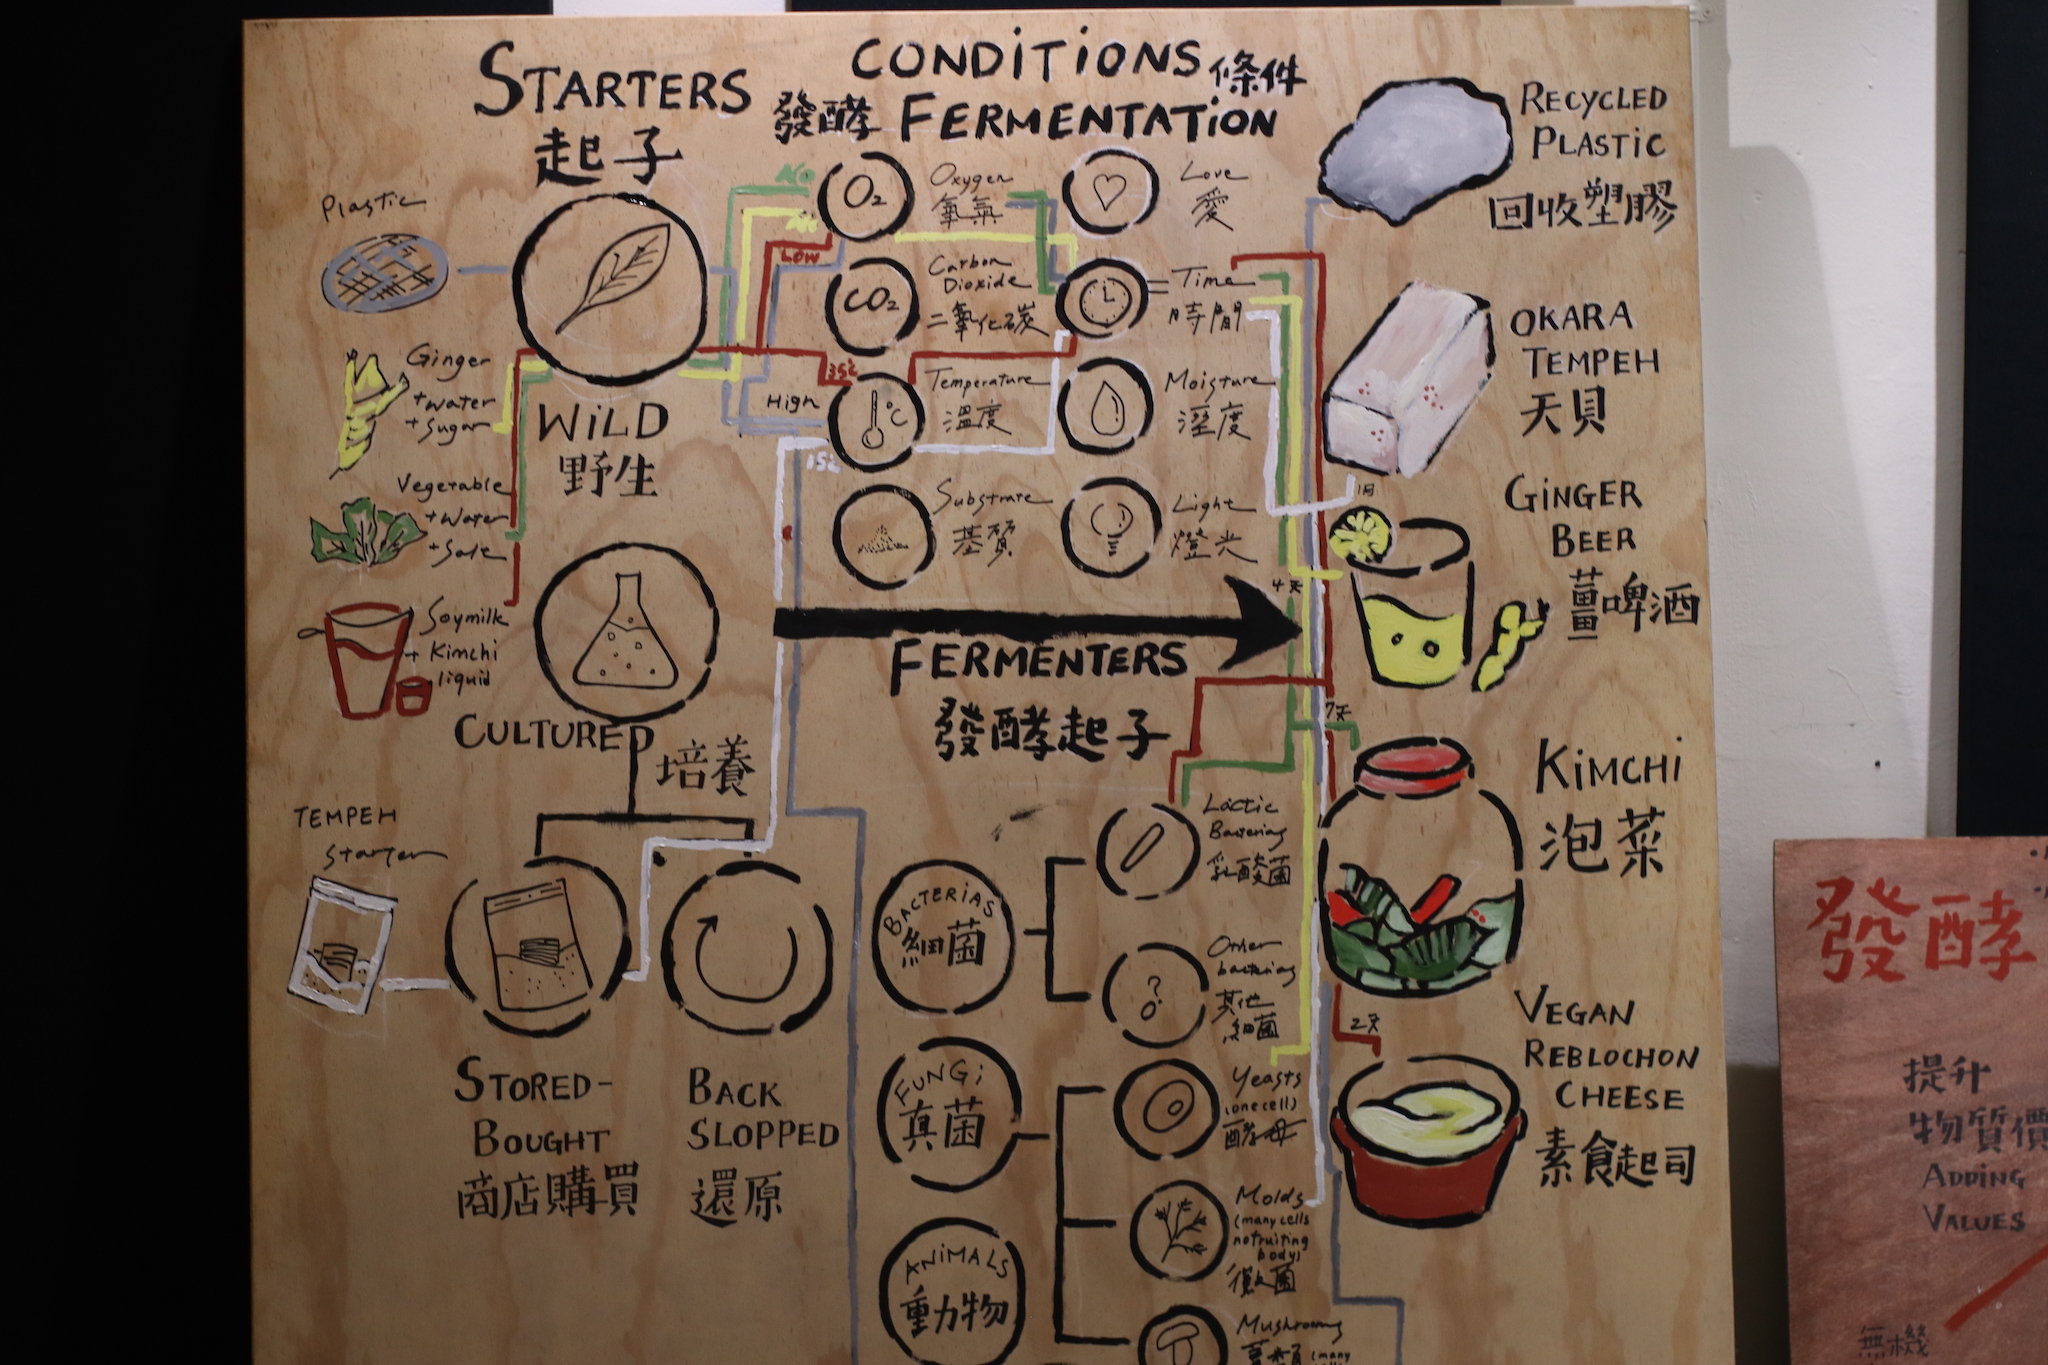 STARTERS
起子
CONDITIONS 條件
發酵 FERMENTATION
Plastic
Ginger
+ Water
+ Sugar
Vegetable
+ Water
+ Salt
Soymilk
+ Kimchi
liquid
WILD
野生
CULTURED
培養
TEMPEH
Starter
STORED-
BOUGHT
商店購買
BACK
SLOPPED
還原
NO
LOW
35℃
High
15℃
O₂
Oxygen
氧氣
CO₂
Carbon
Dioxide
二氧化碳
°C
Temperature
溫度
Substrate
基質
Love
愛
Time
時間
Moisture
溼度
Light
燈光
FERMENTERS
發酵起子
BACTERIAS
細菌
Lactic
Bacterias
乳酸菌
?
Other
bacterias
其他
細菌
FUNGI
真菌
Yeasts
(one cell)
酵母
Molds
(many cells
no fruiting
body)
黴菌
Mushrooms
(many
ANIMALS
動物
RECYCLED
PLASTIC
回收塑膠
OKARA
TEMPEH
天貝
GINGER
BEER
薑啤酒
4天
7天
KIMCHI
泡菜
2天
VEGAN
REBLOCHON
CHEESE
素食起司
發酵
提升
物質價
ADDING
VALUES
無機